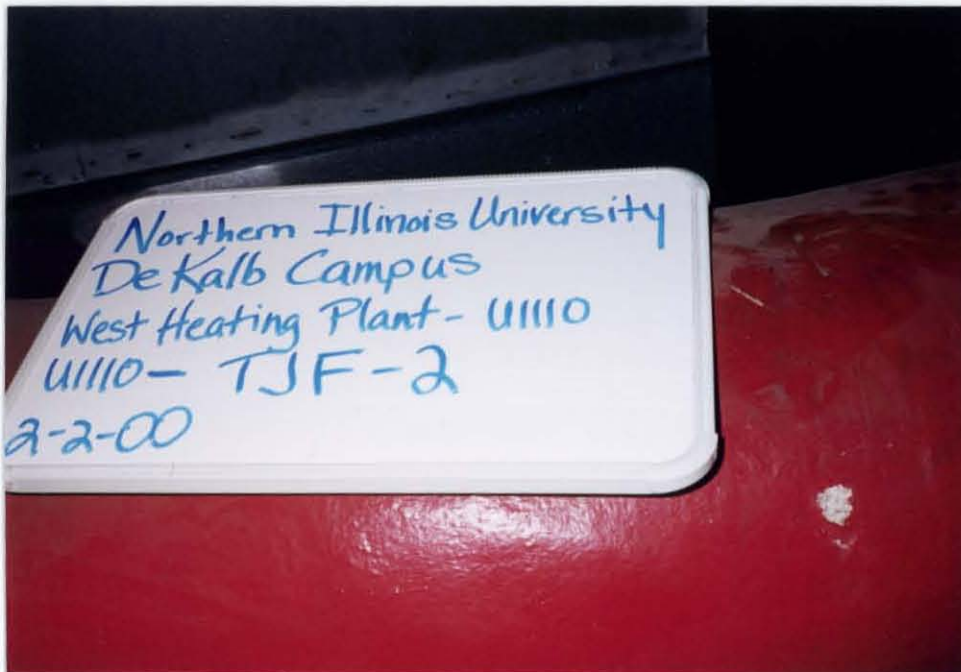 Northern Illinois University
De Kalb Campus
West Heating Plant - U1110
U1110 - TJF-2
2-2-00